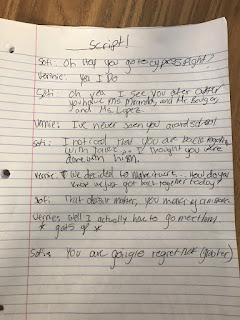 Script 1
Sofi: Oh Hey you go to cypress right?
Vernie: Yea I Do
Sofi: Oh yea I see you after
you have Ms. Miranda, and Mr.
and Ms. Lopez.
Vernie: I've never seen you around school
Sofi: I noticed that you are back
with I thought you were
done with him.
Vernie: We decided to make it work... How do you
know we just got back together today?
Sofi: That doesn't matter, you making a mistake
Vernie: Well I actually have to go meet him.
* gets up *
Sofi: You are going to regret that (louder)